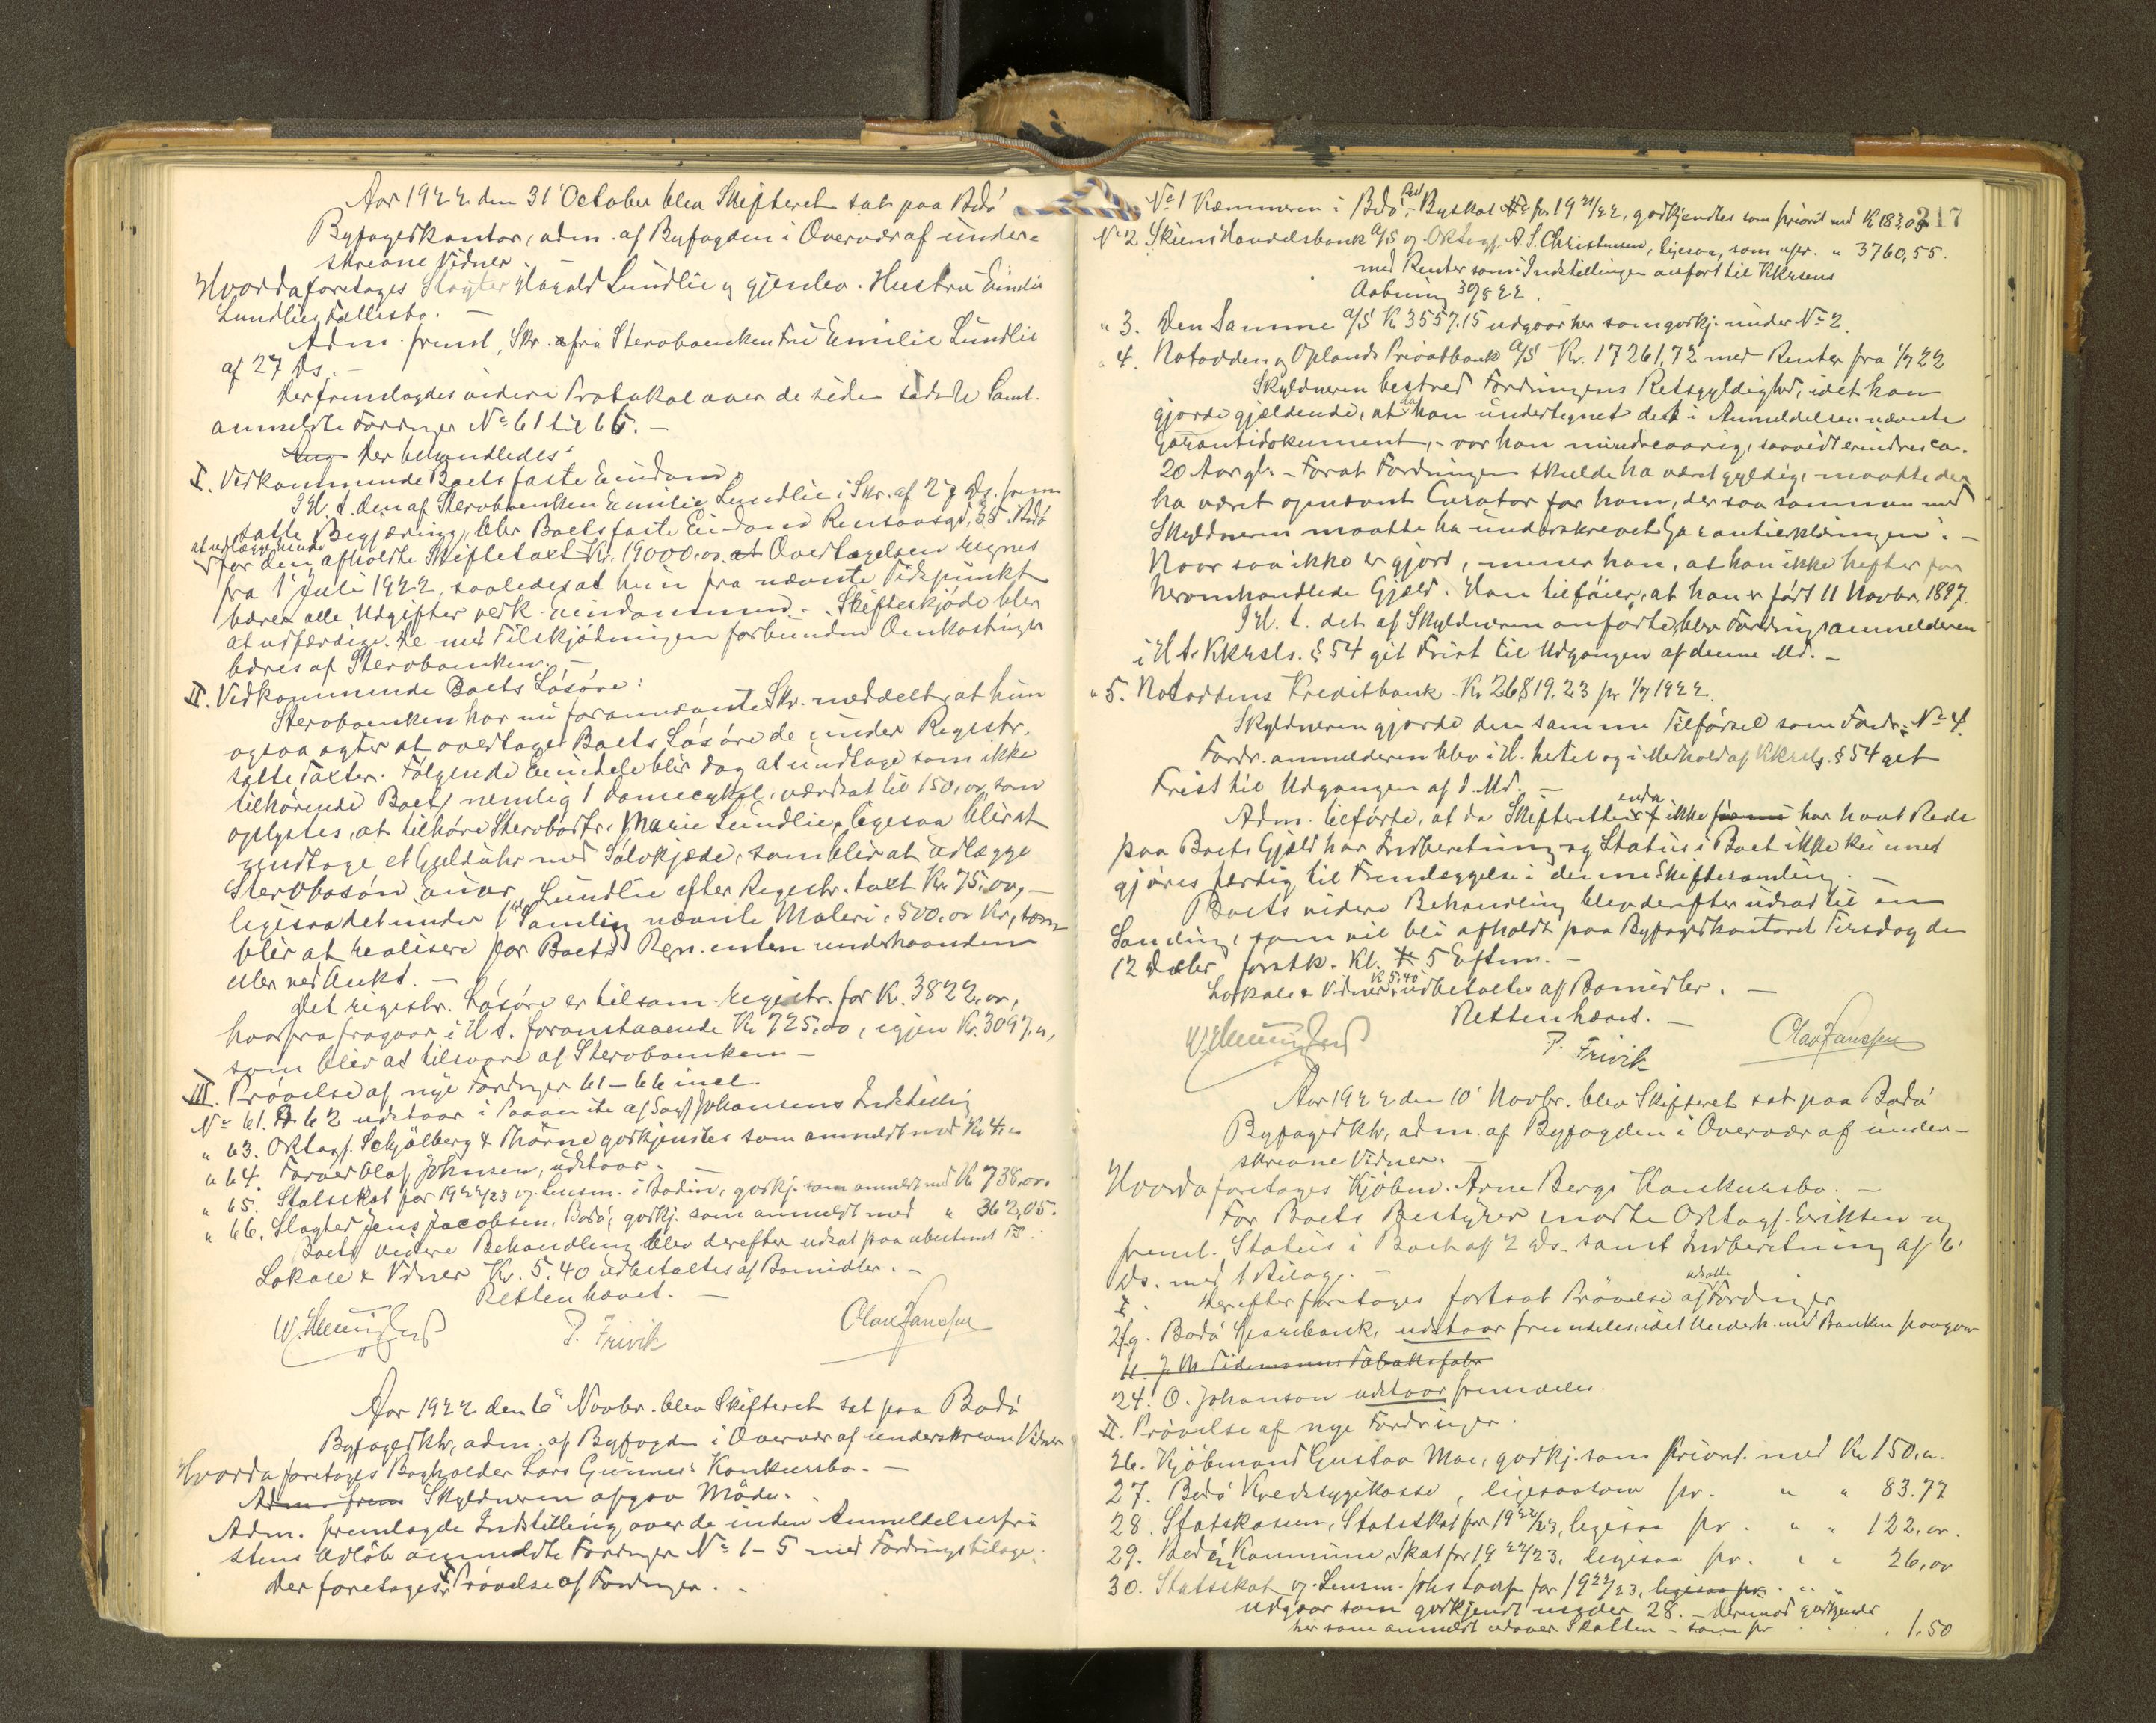 Aar 1922 den 31' October blev Skifteret sat paa Bodø
Byfogedkontor, adm. af Byfogden i Overvær af under-
skrevne Vidner
Hvorda foretoges Slagter Harald Lundlie og gjenlev. Hustru Emilie
Lundlies Fællesbo. -
Adm. freml. Skr. fra Stervboenken Fru Emilie Lundlie
af 27 ds. -
Der fremlagdes videre Protokol over de siden sidste Saml.
anmeldte Fordringer No 61 til 66. -
Der behandledes:
I. Vedkommende Boets faste Eiendom
I H. t. den af Stervboenken Emilie Lundlie i Skr. af 27 ds. frem
satte Begjæring, blev Boets faste Eiendom Rensaasgd. 35 Bodø
at udlægge hende
for den afholdte Skiftetaxt Kr. 19000,00. Overtagelsen regnes
fra 1' Juli 1922, saaledes at hun fra nævnte Tidspunkt
bærer alle Udgifter vedk. eiendommen. Skifteskjøde blev
at udfærdige. De med Tilskjødningen forbundne Omkostninger
bæres af Stervboenken. -
II. Vedkommende Boets Løsøre:
Stervboenken har nu i forannævnte Skr. meddelt, at hun
ogsaa agter at overtage Boets Løsøre de under Registr.
satte Taxter. Følgende Eiendele blir dog at undtage som ikke
tilhørende Boet, nemlig 1 Damecykel, værdsat til 150,00, som
oplystes, at tilhøre Sterbodtr. Marie Lundlie, ligesaa blir at
undtage et Gulduhr med Sølvkjæde, som blir at udlægge
Stervbosøn Einar Lundlie efter Registr. taxt Kr. 75,00, -
ligesaa det under 1ste Samling nævnte Maleri, 500,00 Kr, som
blir at realisere for Boets Regn. enten underhaanden
eller ved Aukt. -
Det registr. Løsøre er tilsam. registr. for Kr. 3822,00,
hvorfra fragaar i H. t. foranstaaende Kr 725,00, igjen Kr. 3097,00,
som blir at tilsvare af Stervboenken -
III. Prøvelse af nye Fordringer 61-66 incl.
No 61. & 62 udstaar i Paavente af Sagf Johansens Indstilling
" 63. O.R.sagf. Schjølberg & Thorne godkjendtes som anmeldt med
" 64. Farver Olaf Johnsen, udstaar.
" 65. Statsskat for 1922/23 v. Lensm. i Bodin, godkj. som anmeldt med Kr 738,00.
" 66. Slagter Jens Jacobsen, Bodø, godkj. som anmeldt med " 362,05.
Boets videre Behandling blev derefter udsat paa ubestemt Tid.
Lokale & Vidner Kr. 5.40 udbetaltes af Bomidler. -
Retten hævet. -
P. Frivik
Olav Janssen
Aar 1922 den 6' Novbr. blev Skifteret sat paa Bodø
Byfogedktr, adm. af Byfogden i Overvær af underskrevne Vidner
Hvorda foretoges Bogholder Lars Gunnes' Konkursbo. -
Adm. frem Skyldneren afgav Møde.
Adm. fremlagde Indstilling over de inden Anmeldelsesfri
stens Udløb anmeldte Fordringer No 1-5 med Fordringsbilage.
Der foretoges Prøvelse af Fordringer. -
217
No 1 Kæmneren i Bodø, Byskat for 1921/22, godkjendtes som priorit med Kr 183,03
No 2 Skiens Handelsbank A/S v. O.R.sagf. A. S. Christensen, ligesaa, som upr. " 3760,55.
med Renter som i Indstillingen anført til Kkrsens
Aabning 30/8 22.
" 3. Den Samme A/S Kr 3557.15 udgaar her som godkj. under No 2.
" 4. Notodden og Oplands Privatbank A/S Kr. 17261,72 med Renter fra 1/7 22
Skyldneren bestred Fordringens Retsgyldighed, idet han
gjorde gjældende, at da han undertegnet det i Anmeldelsen nævnte
Garantidokument, - var han mindreaarig, saavidt erindres ca.
20 Aar gl. - For at Fordringen skulde ha været gyldig, maatte der
ha været opnævnt Curator for ham, der saa sammen med
Skyldneren maatte ha underskrevet Garantierklæringen. -
Naar saa ikke er gjort, mener han, at han ikke hefter for
heromhandlede Gjæld. Han tilføier, at han er født 11 Novbr. 1897.
I H. t. det af Skyldneren anførte, blev Fordringsanmelderen
i H. t. Kkrsls. § 54 git Frist til Udgangen af denne Md. -
" 5. Notoddens Kreditbank - Kr 26819.23 pr 1/7 1922.
Skyldneren gjorde den samme Tilførsel som Fordr. No 4.
Fordr. anmelderen blev i H. hertil og i Medhold af Kkrslg. § 54 git
Frist til Udgangen af d. Md. -
Adm. tilførte, at da Skifteretten enda ikke har havt Rede
paa Boets Gjæld har Indberetning og Status i Boet ikke kunnet
gjøres færdig til Fremlæggelse i denne Skiftesamling. -
Boets videre Behandling blev derefter udsat til en
Samling, som vil bli afholdt paa Byfogedkontoret Tirsdag den
12 Decbr. førstk. Kl. 5 Eftm. -
Lokale & Vidner Kr 5.40 udbetaltes af Bomidler. -
Retten hævet. -
P. Frivik
Olav Janssen
Aar 1922 den 10' Novbr. blev Skifteret sat paa Bodø
Byfogedktr, adm. af Byfogden i Overvær af under-
skrevne Vidner.
Hvorda foretoges Kjøbmd. Arne Bergs Konkursbo. -
For Boets Bestyrer mødte O.R.sagf. Eriksen og
freml. Status i Boet af 2 ds. samt Indberetning af 6'
ds. med 1 Bilag. -
I. Herefter foretoges fortsat Prøvelse af udsatte Fordringer
2/g. Bodø Sparebank, udstaar fremdeles, idet Underh. med Banken paagaar
11. J. M. Tidemanns Tobaksfabr
24. O. Johanson udstaar fremdeles.
II. Prøvelse af nye Fordringer.
26. Kjøbmand Gustav Moe, godkj. som priorit. med Kr 150,00.
27. Bodø Kredssygekasse, ligesaa som pr. " " 83.77
28. Statskassen, Statsskat for 1922/23, ligesaa pr. " " 122,00.
29. Bodin Kommune, Skat for 1922/23, ligesaa pr. " " 26,00
30. Statsskat v. Lensm. for 1922/23, ligesaa pr. " "
udgaar som godkjendt under 28. - Derimod godkjendes
her som anmeldt udover Skatten - som pr . . . 1.50